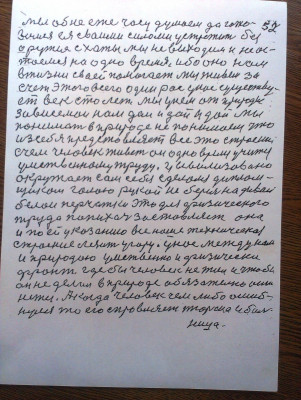 мы обне еже часу думаем до гото-
вения ея своими силами устроит без 52
оружия с хаты мы не выходим и не ос-
таемся на одно время, ибо оно нам
в жизни своей помогает мы живем за
счет этого всего один раз уное существу-
ет век сто лет. мы идем от природе
Зависемои нам дай и дай и дай мы
понимат в природе не понимаем что
из себя представляет все это строение,
с чем человек живет он одно время учит
умственному труду, и цивилизовано
окружает сам себя сделал диплом-
щиком голою рукой не берис надевай
белои перчатки это для физического
труда заставляет она
и по ей указанию все наше техническая
строение летит угору. уное между нами
и природою умственно и физически
фронт где бы человек не жил и чтобы
он не делал в природе обязательно оши
нется. А когда человек чем либо ошиб-
нулся это его справляет тюрма и бол-
ница.